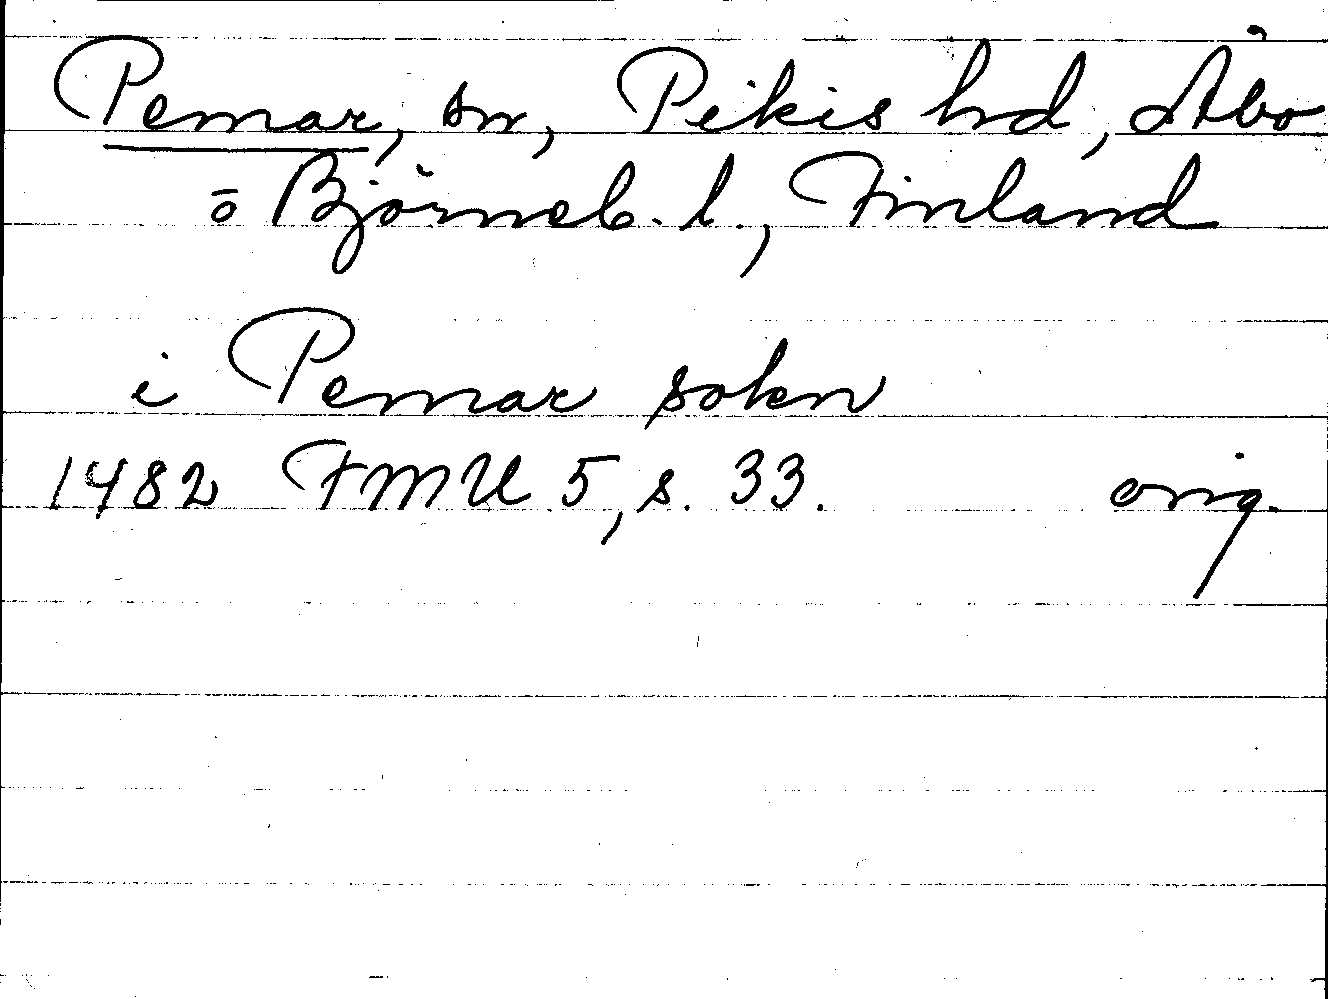 Pemar, sn, Pikis hd, Åbo
o Björneb. l., Finland
i Pemar sokn
1482 FMU 5, s. 33. orig.